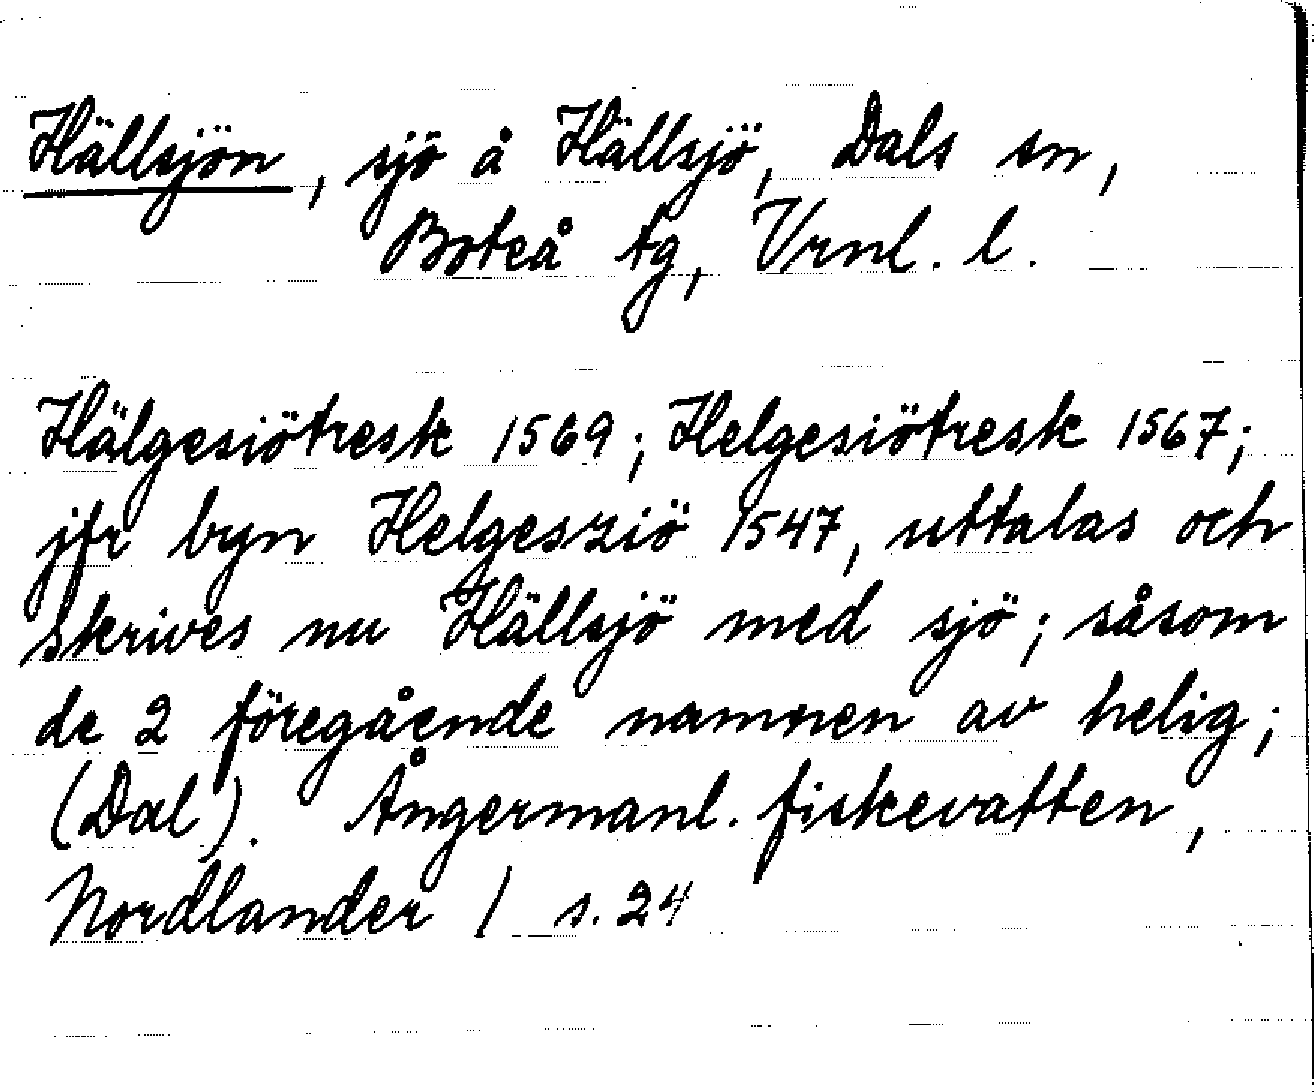 Hällsjön, sjö å Hällsjö, Dals sn,
Boteå tg, Vrnl. l.
Hälgesiötresk 1569; Helgesiötresk 1567;
jfr byn Helgessziö 1547, uttalas och
skrives nu Hällsjö med sjö; såsom
de 2 föregående namnen av helig;
(Dal). Ångermanl. fiskevatten,
Nordlander / s. 24